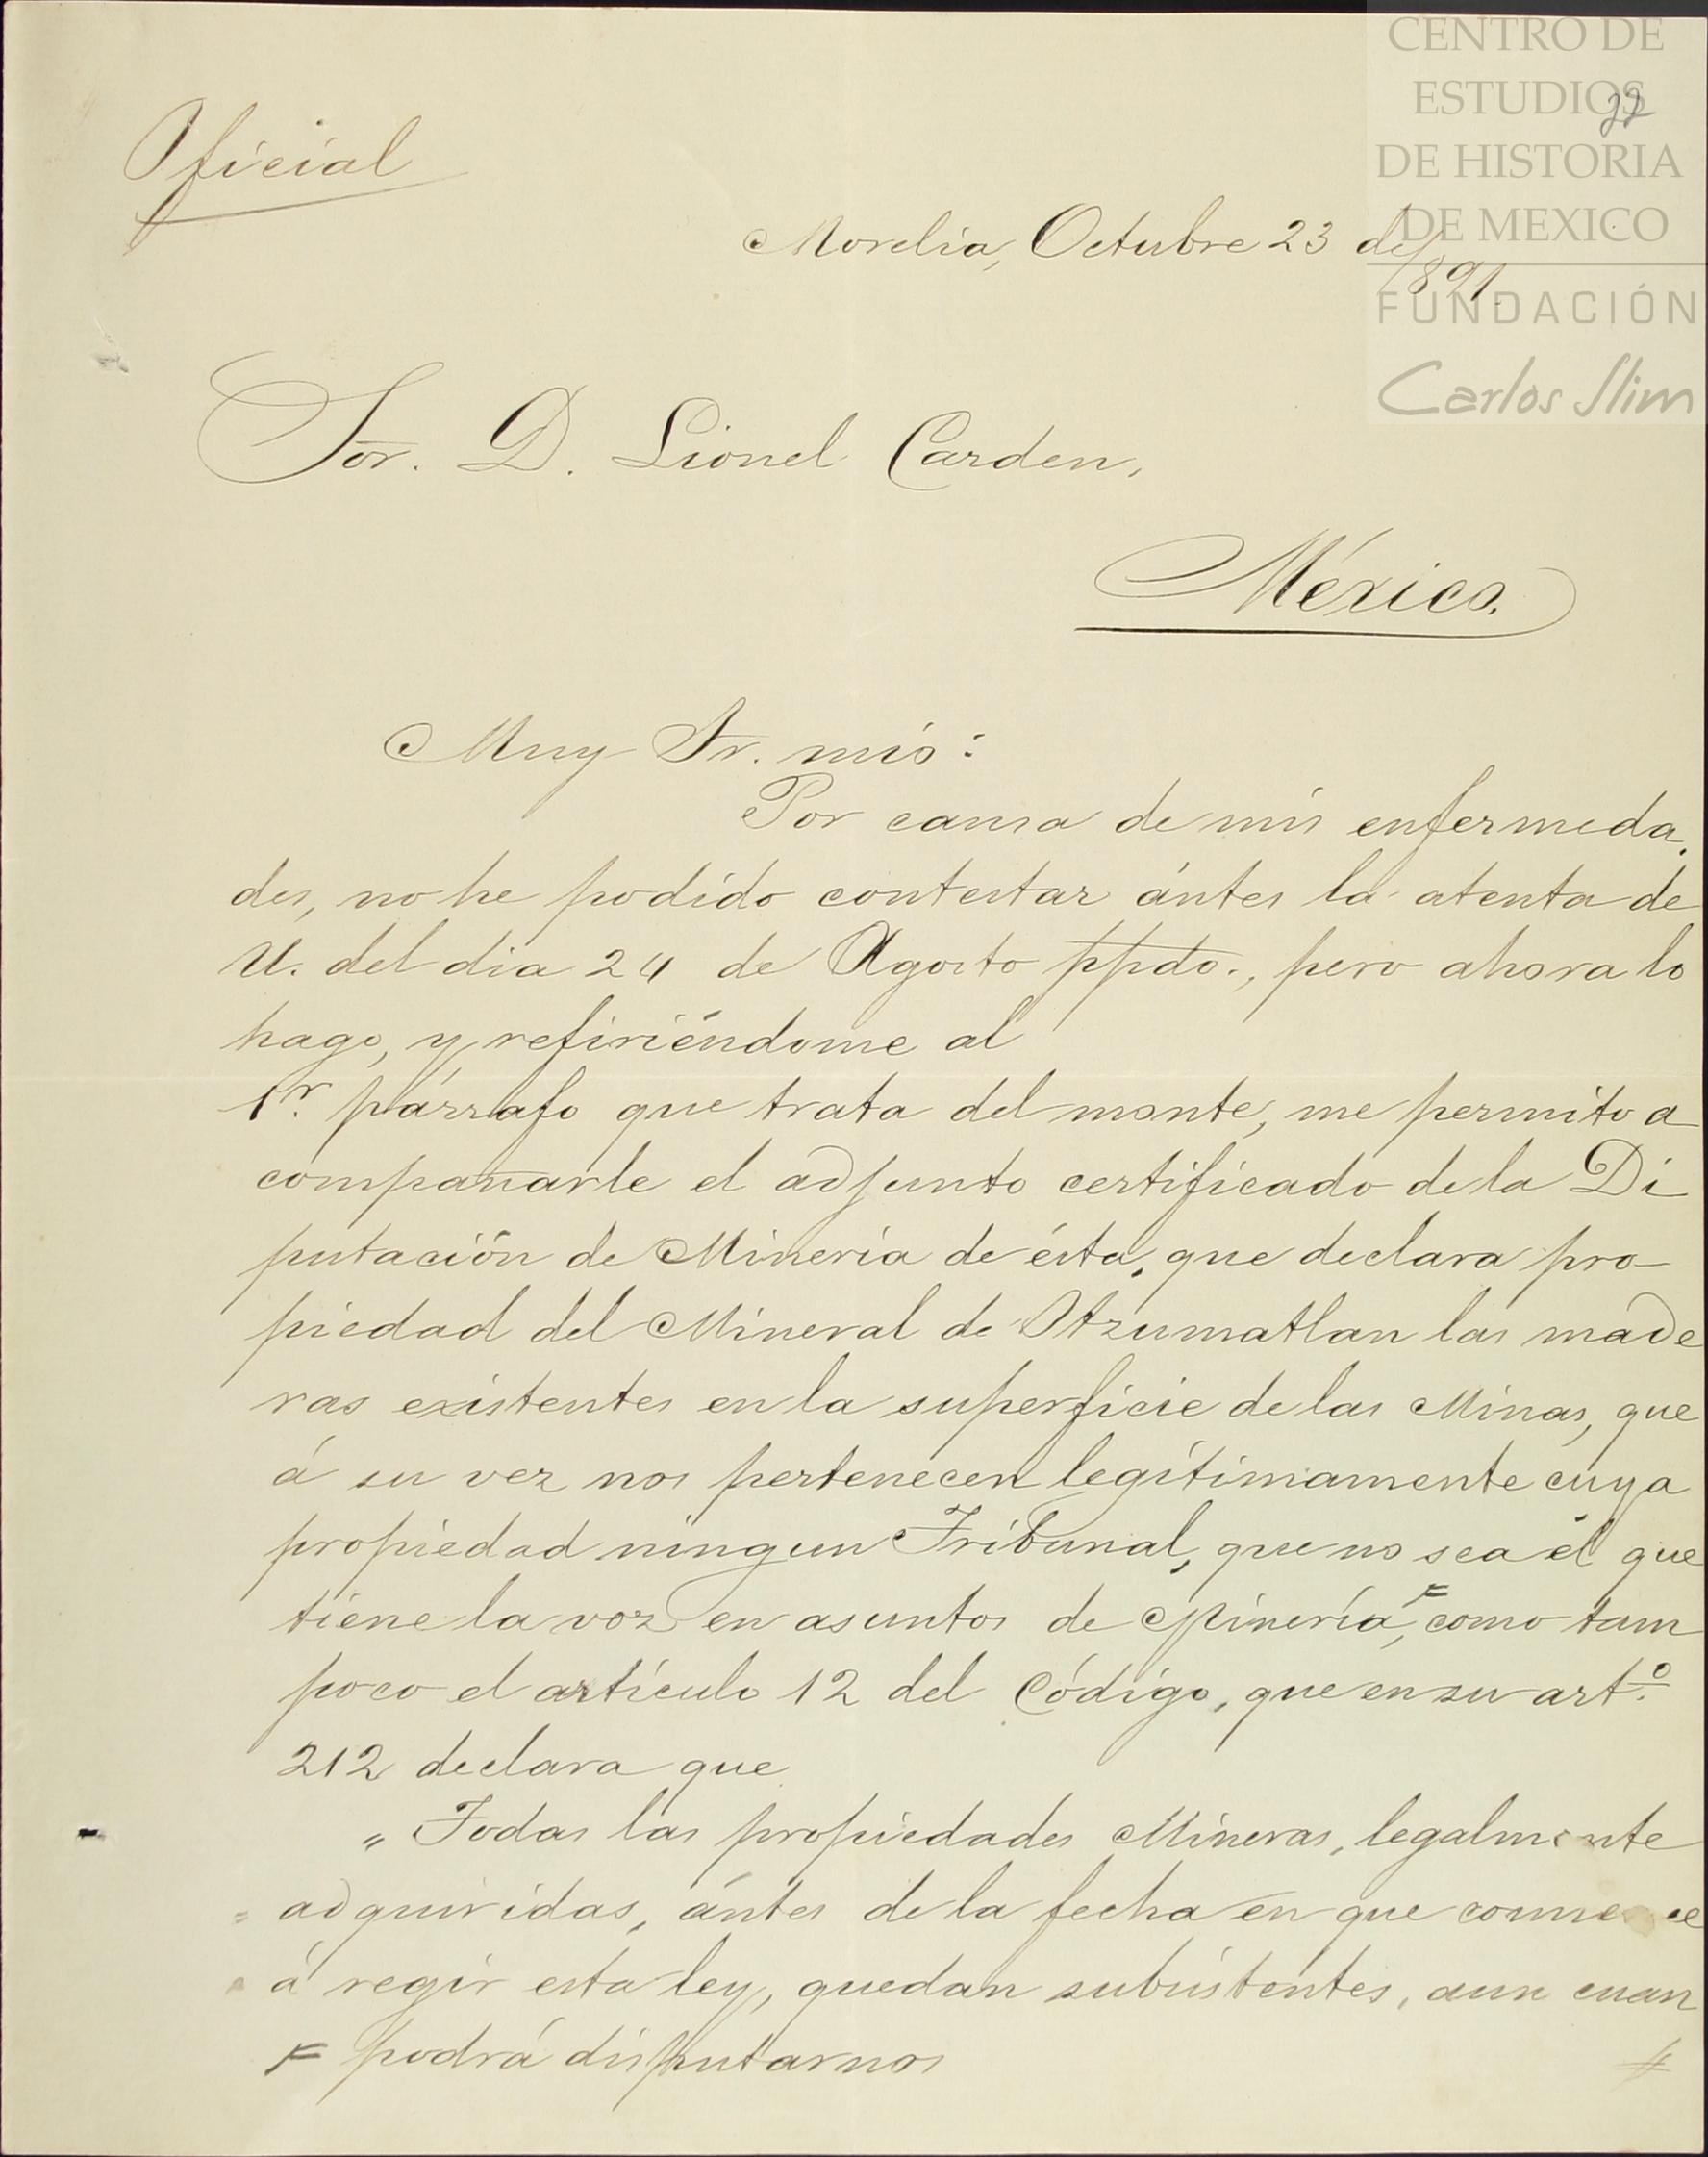 CENTRO DE
ESTUDIOS
DE HISTORIA
DE MEXICO
FUNDACIÓN
Carlos Slim
22
Oficial
Morelia, Octubre 23 de
1891.
Sor. D. Lionel Carden,
México.
Muy Sr. mío:
Por causa de mis enfermeda
des, no he podido contestar ántes la atenta de
U. del dia 24 de Agosto ppdo., pero ahora lo
hago, y refiriéndome al
1r. párrafo que trata del monte, me permito a
compañarle el adjunto certificado de la Di
putación de Minería de ésta, que declara pro-
piedad del Mineral de Otzumatlan las made
ras existentes en la superficie de las Minas, que
á su vez nos pertenecen legítimamente cuya
propiedad ningun Tribunal, que no sea él que
tiene la voz en asuntos de Minería, como tam
poco el artículo 12 del Código, que en su art.º
212 declara que
„ Todas las propiedades Mineras, legalmente
" adquiridas, ántes de la fecha en que comience
" á regir esta ley, quedan subsistentes, aun cuan
podrá disputarnos